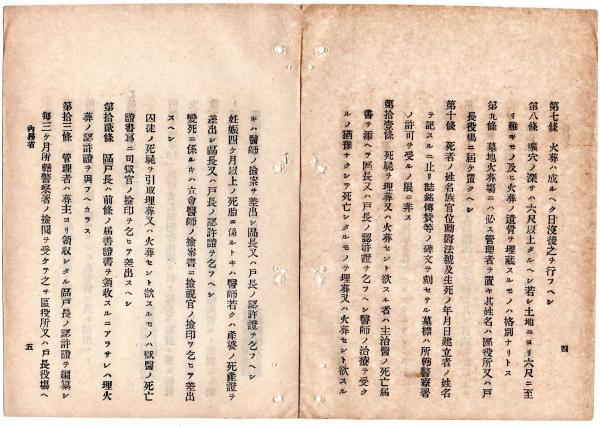 四
第七條　火葬ハ成ルヘク日沒後之ヲ行フヘシ
第八條　壙穴ノ深サハ六尺以上タルヘシ若シ土地ニヨリ六尺ニ至
リ難キモノ及ヒ火葬ノ遺骨ヲ埋藏スルモノハ格別ナリトス
第九條　墓地火葬場ニハ必ス管理者ヲ置キ其姓名ハ區役所又ハ戸
長役場ニ屆ケ置クヘシ
第十條　死者ノ姓名族官位勳爵法號及生死ノ年月日建立者ノ姓名
ヲ記スルニ止リ誌銘傳賛等ノ碑文ヲ刻セサル墓標ハ所轄警察署
ノ許可ヲ受ルノ限ニ非ス
第拾壹條　死屍ヲ埋葬又ハ火葬セント欲スル者ハ主治醫ノ死亡屆
書ヲ添ヘテ區長又ハ戸長ノ認許證ヲ乞フヘシ醫師ノ治療ヲ受ク
ルノ猶豫ナクシテ死亡シタルモノヲ埋葬又ハ火葬セント欲スル
キハ醫師ノ檢案ヲ差出シ區長又ハ戸長ノ認許證ヲ乞フヘシ
妊娠四ケ月以上ノ死胎ニ係ルトキハ醫師若クハ產婆ノ死產證ヲ
差出シ區長又ハ戸長ノ認許證ヲ乞フヘシ
變死ニ係ルモノハ立會醫師ノ檢案書ニ檢視官ノ檢印ヲ乞ヒテ差出
スヘシ
囚徒ノ死屍ヲ引取埋葬又ハ火葬セント欲スルモノハ獄醫ノ死亡
證書寫ニ司獄官ノ檢印ヲ乞ヒテ差出スヘシ
第拾貳條　區戸長ハ前條ノ屆書證書ヲ領收スルニアラサレハ埋火
葬ノ認許證ヲ與フヘカラス
第拾三條　管理者ハ葬主ヨリ領收シタル區戸長ノ認許證ヲ編纂シ
每三ケ月所轄警察署ノ檢閱ヲ受ケテ之ヲ區役所又ハ戸長役場ヘ
內務省
五